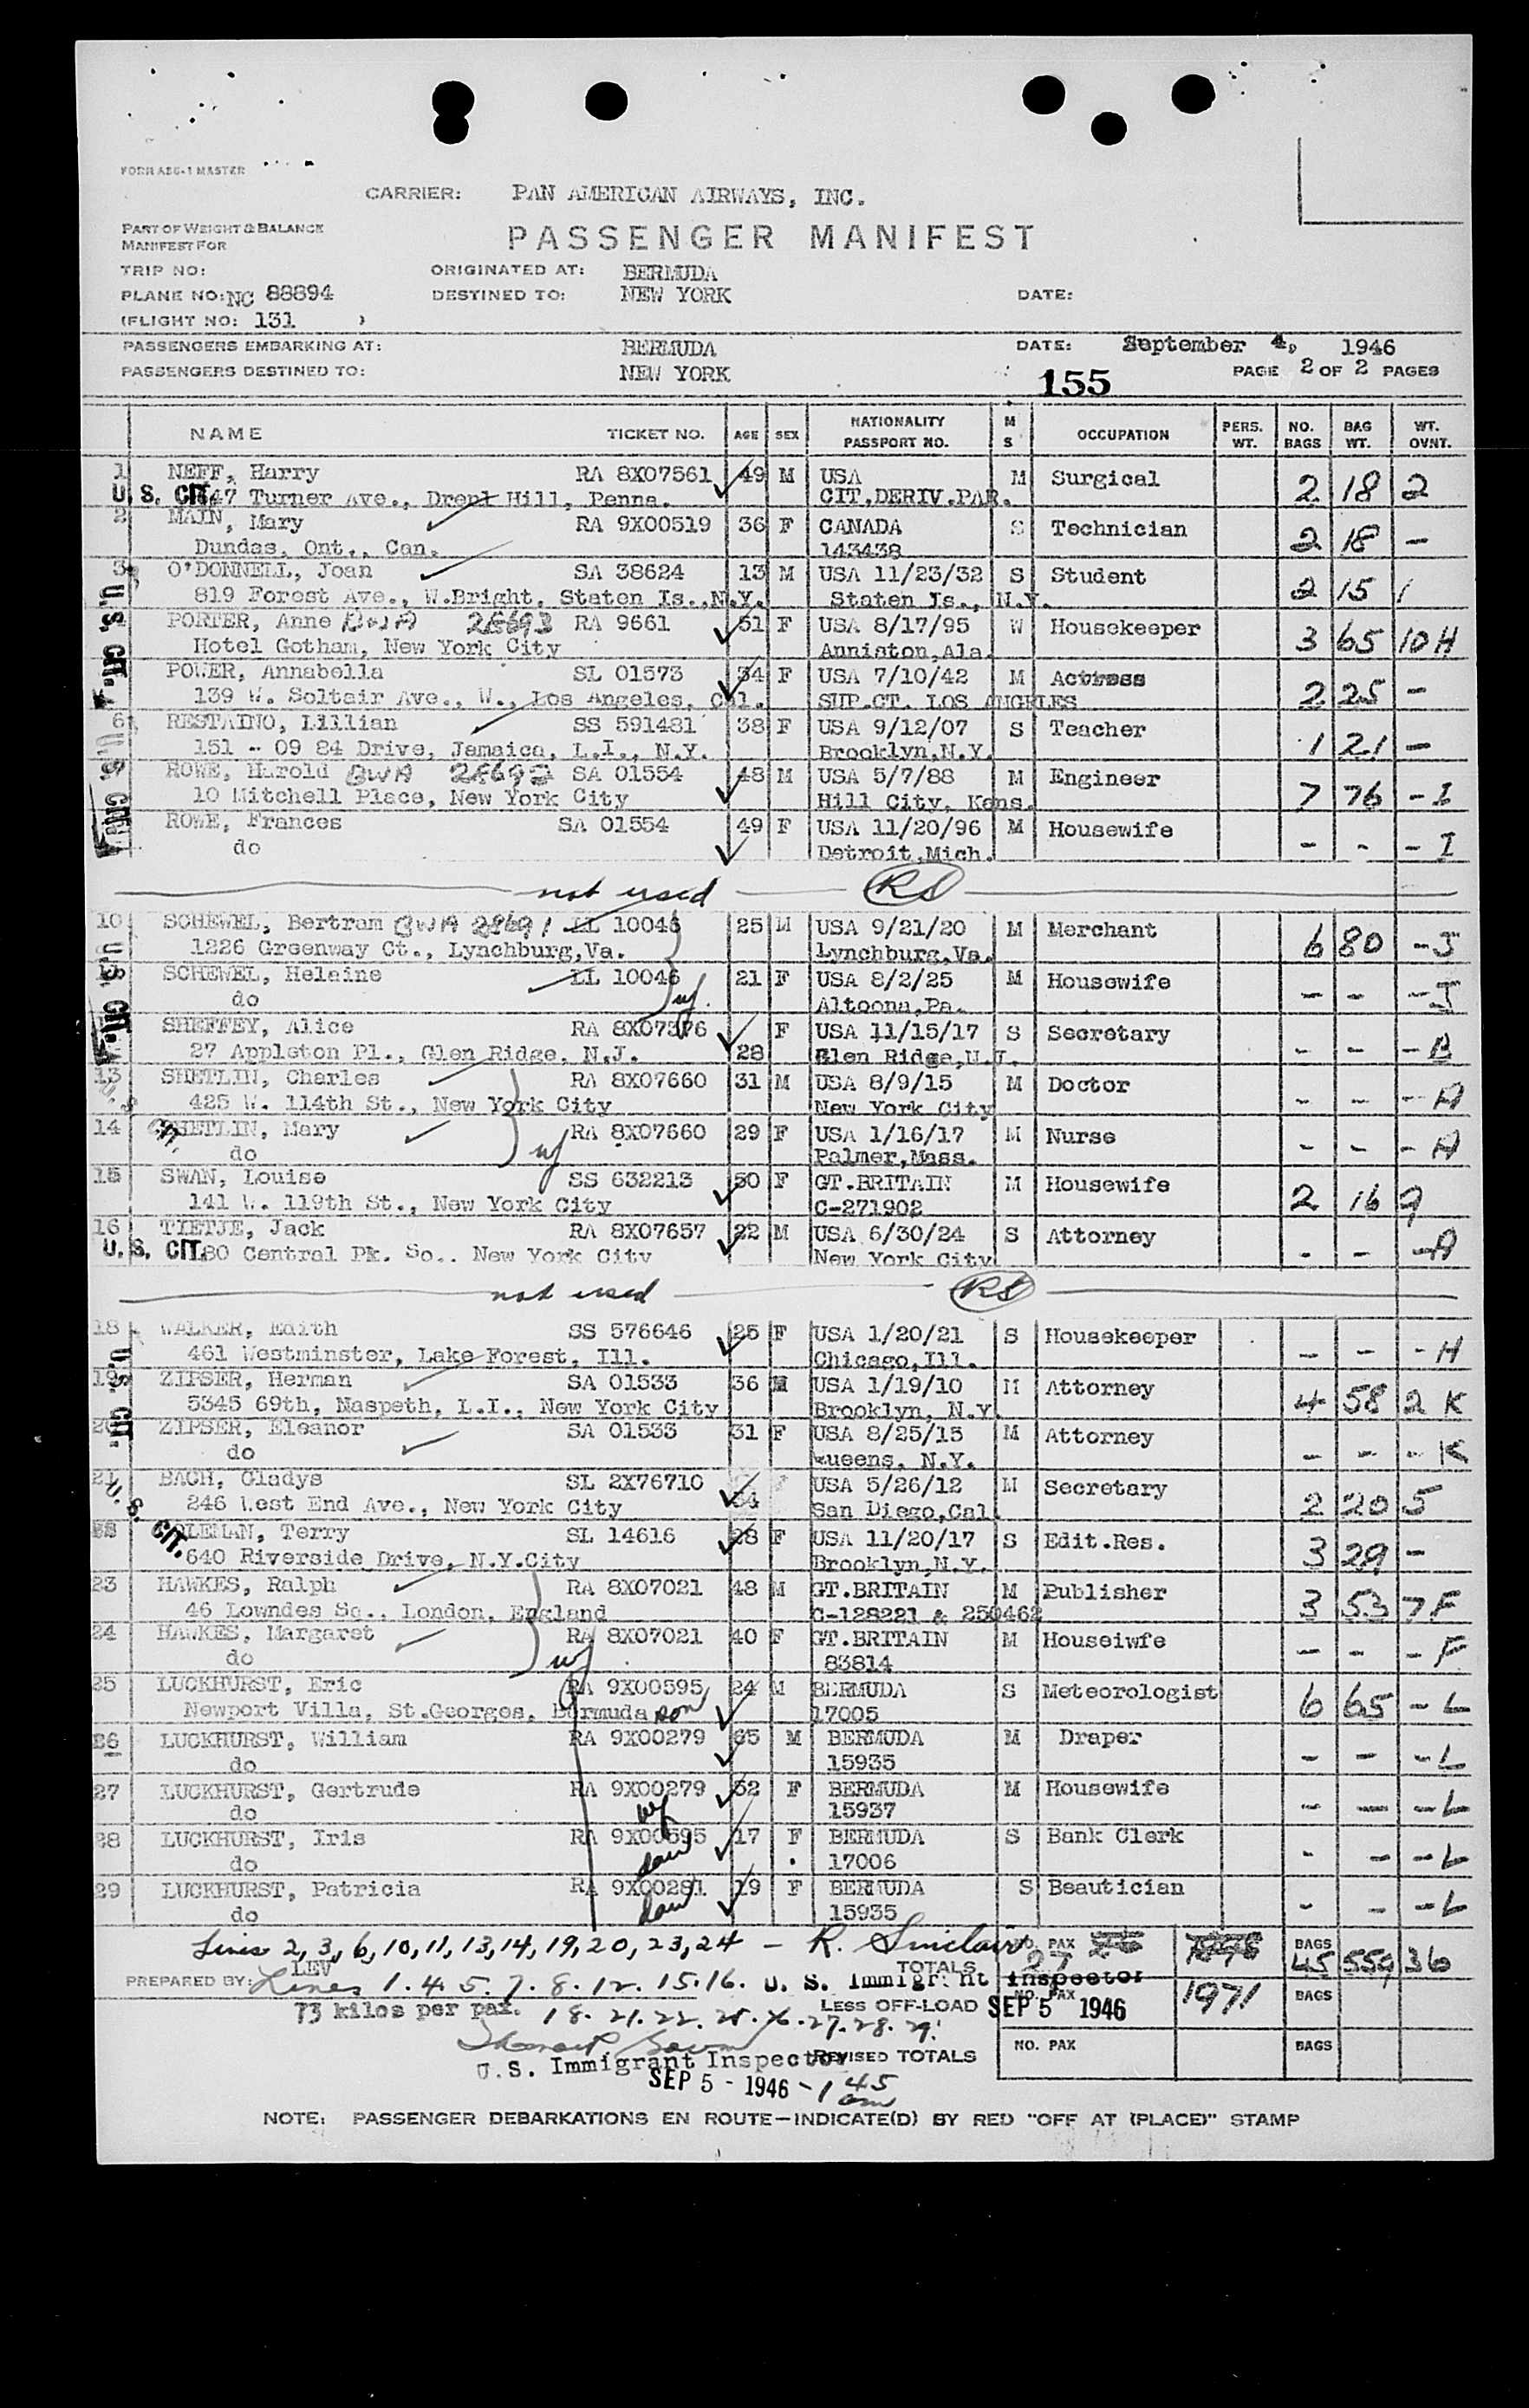 FORM ABG-1 MASTER
CARRIER: PAN AMERICAN AIRWAYS, INC.
PART OF WEIGHT & BALANCE
MANIFEST FOR
PASSENGER MANIFEST
TRIP NO: ORIGINATED AT: BERMUDA
PLANE NO: NC 88894 DESTINED TO: NEW YORK DATE:
(FLIGHT NO: 131 )
PASSENGERS EMBARKING AT: BERMUDA DATE: September 4, 1946
PASSENGERS DESTINED TO: NEW YORK 155 PAGE 2 OF 2 PAGES
NAME TICKET NO. AGE SEX NATIONALITY PASSPORT NO. M S OCCUPATION PERS. WT. NO. BAGS BAG WT. WT. OVNT.
1 NEFF, Harry RA 8X07561 49 M USA M Surgical 2 18 2
U. S. CIT. 47 Turner Ave., Drexl Hill, Penna. CIT.DERIV.PAR.
2 MAIN, Mary RA 9X00519 36 F CANADA S Technician 2 18 -
Dundas, Ont., Can. 143438
3 O'DONNELL, Joan SA 38624 13 M USA 11/23/32 S Student 2 15 1
819 Forest Ave., W.Bright, Staten Is.,N.Y. Staten Is., N.Y.
U.S. CIT.
PORTER, Anne BWA 28693 RA 9661 51 F USA 8/17/95 W Housekeeper 3 65 10 H
Hotel Gotham, New York City Anniston,Ala.
POWER, Annabella SL 01573 34 F USA 7/10/42 M Actress 2 25 -
139 W. Soltair Ave., W., Los Angeles, Cal. SUP.CT. LOS ANGELES
6 RESTAINO, Lillian SS 591481 38 F USA 9/12/07 S Teacher 1 21 -
151 - 09 84 Drive, Jamaica, L.I., N.Y. Brooklyn,N.Y.
U.S. CIT.
ROWE, Harold BWA 28692 SA 01554 48 M USA 5/7/88 M Engineer 7 76 - I
10 Mitchell Place, New York City Hill City, Kans.
ROWE, Frances SA 01554 49 F USA 11/20/96 M Housewife - - - I
do Detroit,Mich.
not used RS
10 SCHEWEL, Bertram BWA 28691 LL 10046 25 M USA 9/21/20 M Merchant 6 80 - J
1226 Greenway Ct., Lynchburg,Va. Lynchburg,Va.
U.S. CIT.
SCHEWEL, Helaine LL 10046 21 F USA 8/2/25 M Housewife - - - J
do wf. Altoona,Pa.
SHEFFEY, Alice RA 8X07376 F USA 11/15/17 S Secretary - - - B
27 Appleton Pl., Glen Ridge, N.J. 28 Glen Ridge,N.J.
13 SHETLIN, Charles RA 8X07660 31 M USA 8/9/15 M Doctor - - - A
425 W. 114th St., New York City New York City
U. S. CIT.
14 SHETLIN, Mary wf RA 8X07660 29 F USA 1/16/17 M Nurse - - - A
do Palmer,Mass.
15 SWAN, Louise SS 632213 50 F GT.BRITAIN M Housewife 2 16 9
141 W. 119th St., New York City C-271902
16 TIETJE, Jack RA 8X07657 22 M USA 6/30/24 S Attorney - - - A
U. S. CIT. 180 Central Pk. So.. New York City New York City
not used RS
18 WALKER, Edith SS 576646 25 F USA 1/20/21 S Housekeeper - - - H
461 Westminster, Lake Forest, Ill. Chicago,Ill.
U.S. CIT.
19 ZIPSER, Herman SA 01533 36 M USA 1/19/10 M Attorney 4 58 2 K
5345 69th, Maspeth, L.I., New York City Brooklyn, N.Y.
20 ZIPSER, Eleanor SA 01533 31 F USA 8/25/15 M Attorney - - - K
do Queens, N.Y.
21 BACH, Gladys SL 2X76710 USA 5/26/12 M Secretary 2 20 5
246 West End Ave., New York City 34 San Diego,Cal.
U. S. CIT.
COLEMAN, Terry SL 14616 28 F USA 11/20/17 S Edit.Res. 3 29 -
640 Riverside Drive, N.Y.City Brooklyn,N.Y.
23 HAWKES, Ralph RA 8X07021 48 M GT.BRITAIN M Publisher 3 53 7 F
46 Lowndes Sq., London, England C-128221 & 250462
24 HAWKES, Margaret wf RA 8X07021 40 F GT.BRITAIN M Houseiwfe - - - F
do 83814
25 LUCKHURST, Eric RA 9X00595 24 M BERMUDA S Meteorologist 6 65 - L
Newport Villa, St.Georges, Bermuda son 17005
26 LUCKHURST, William RA 9X00279 65 M BERMUDA M Draper - - - L
do 15935
27 LUCKHURST, Gertrude RA 9X00279 52 F BERMUDA M Housewife - - - L
do wf 15937
28 LUCKHURST, Iris RA 9X00595 17 F BERMUDA S Bank Clerk - - - L
do dau 17006
29 LUCKHURST, Patricia RA 9X00281 19 F BERMUDA S Beautician - - - L
do dau 15935
Lines 2, 3, 6, 10, 11, 13, 14, 19, 20, 23, 24 - R. Sinclair NO. PAX 27 BAGS 45 559 36
LEV TOTALS
PREPARED BY: Lines 1. 4. 5. 7. 8. 12. 15. 16. U. S. Immigrant Inspector
73 kilos per pax. 18. 21. 22. 25. 26. 27. 28. 29. LESS OFF-LOAD SEP 5 1946 NO. PAX 1971 BAGS
U.S. Immigrant Inspector REVISED TOTALS NO. PAX BAGS
SEP 5 - 1946 - 1 45 am
NOTE: PASSENGER DEBARKATIONS EN ROUTE—INDICATE(D) BY RED "OFF AT (PLACE)" STAMP